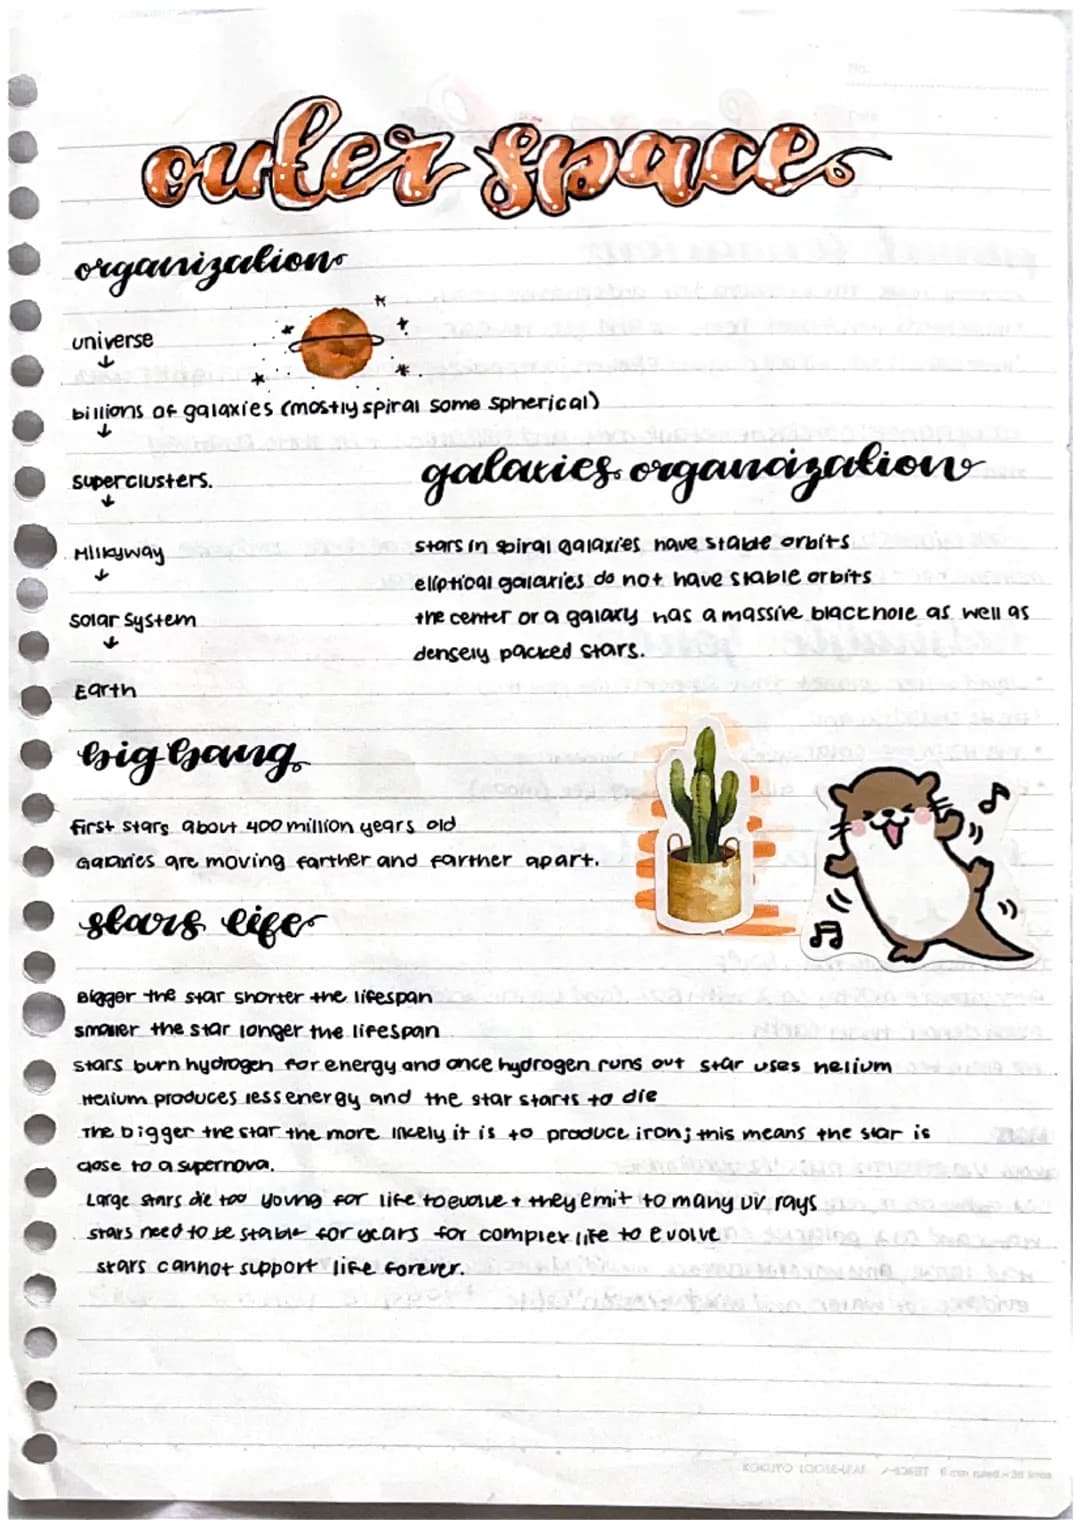 outer space
organization
universe
billions of galaxies (mostly spiral some spherical)
superclusters.
Milkyway
Solar System
Earth
galaxies organization
stars in spiral galaxies have stable orbits
elliptical galaxies do not have stable orbits
the center or a galaxy has a massive blackhole as well as
densely packed stars.
big bang
First stars about 400 million years old
Galaxies are moving farther and farther apart.
stars life
Bigger the star shorter the lifespan
smaller the star longer the lifespan
stars burn hydrogen for energy and once hydrogen runs out star uses helium
Helium produces less energy and the star starts to die
The bigger the star the more likely it is to produce iron; this means the star is
close to a supernova.
Large stars die too young for life to evolve + they emit to many UV rays
stars need to be stable for years for complex life to evolve
stars cannot support life forever.